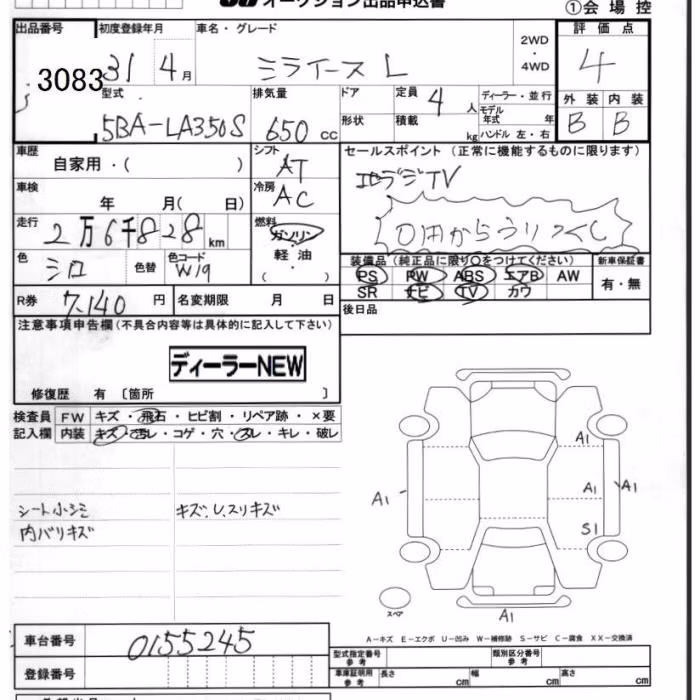 オークション出品申込書
①会場控
出品番号 初度登録年月 車名・グレード 評価点
3083 31 4月 ミライース L 2WD・4WD 4
型式 排気量 ドア 定員 4人 ディーラー・並行 外装 内装
5BA-LA350S 650cc 形状 積載 kg モデル年式 年 ハンドル 左・右 B B
車歴 シフト セールスポイント (正常に機能するものに限ります)
自家用・( ) AT
車検 冷房 AC
年 月( 日)
走行 燃料
2万6千828km ガソリン
軽油
( )
色 色コード
シロ 色替 W19
装備品(純正品に限り○をつけてください) 新車保証書
PS PW ABS エアB AW 有・無
SR ナビ TV カワ
R券 7,140円 名変期限 月 日
後日品
注意事項申告欄(不具合内容等は具体的に記入して下さい)
ディーラーNEW
修復歴 有 〔箇所 〕
検査員 FW キズ・飛石・ヒビ割・リペア跡・×要
記入欄 内装 キズ・汚レ・コゲ・穴・スレ・キレ・破レ
シート小シミ キズ、U、スリキズ
内バリキズ
A1
A1 A1 A1
S1
スペア
A1
A-キズ E-エクボ U-凹み W-補修跡 S-サビ C-腐食 XX-交換済
車台番号 0155245
型式指定番号 参考 類別区分番号 参考
登録番号
車庫証明用 参考 長さ cm 幅 cm 高さ cm